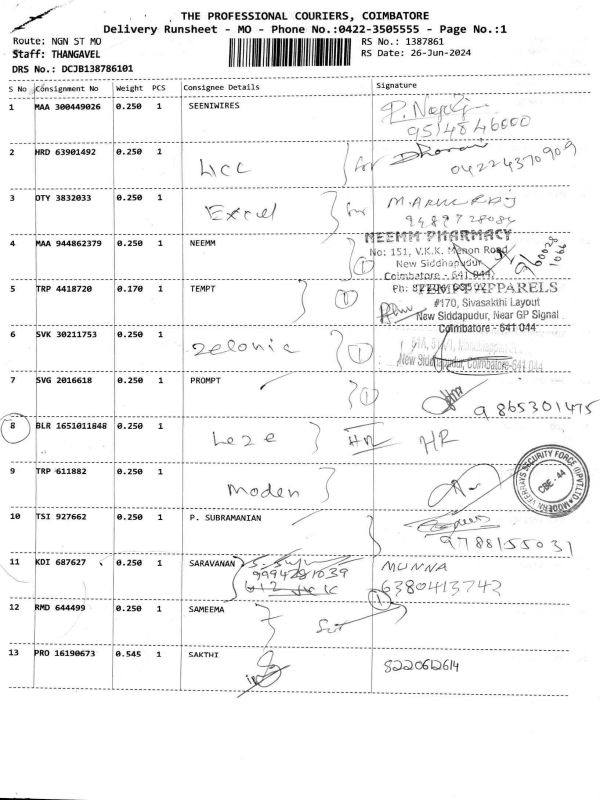 THE PROFESSIONAL COURIERS, COIMBATORE
Delivery Runsheet - MO - Phone No.:0422-3505555 - Page No.:1
Route: NGN ST MO
RS No.: 1387861
Staff: THANGAVEL
RS Date: 26-Jun-2024
DRS No.: DCJB138786101
S No Consignment No Weight PCS Consignee Details Signature
1 MAA 300449026 0.250 1 SEENIWIRES
9514846000
2 HRD 63901492 0.250 1 for Dharani
04224370909
3 OTY 3832033 0.250 1 Excel M. ARUL RAJ
9489728084
4 MAA 944862379 0.250 1 NEEMM 1 NEEMM PHARMACY
No: 151, V.K.K. Menon Road
New Siddhapudur
Coimbatore - 641 044
5 TRP 4418720 0.170 1 TEMPT 1 TEMPT APPARELS
#170, Sivasakthi Layout
New Siddapudur, Near GP Signal
Coimbatore - 641 044
6 SVK 30211753 0.250 1 Zelonic 1
New Siddhapudur, Coimbatore-641 044
7 SVG 2016618 0.250 1 PROMPT 1
9865301475
8 BLR 1651011848 0.250 1 HR HR
9 TRP 611882 0.250 1 Moden
CBE - 44
10 TSI 927662 0.250 1 P. SUBRAMANIAN
9788155031
11 KDI 687627 0.250 1 SARAVANAN MUNNA
9994281039 6380413742
12 RMD 644499 0.250 1 SAMEEMA 1
13 PRO 16190673 0.545 1 SAKTHI
8220612614